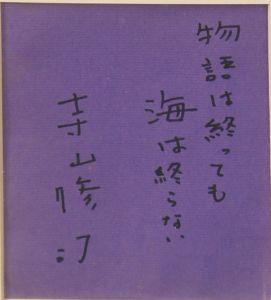 物語は終っても
海は終らない
寺山修司